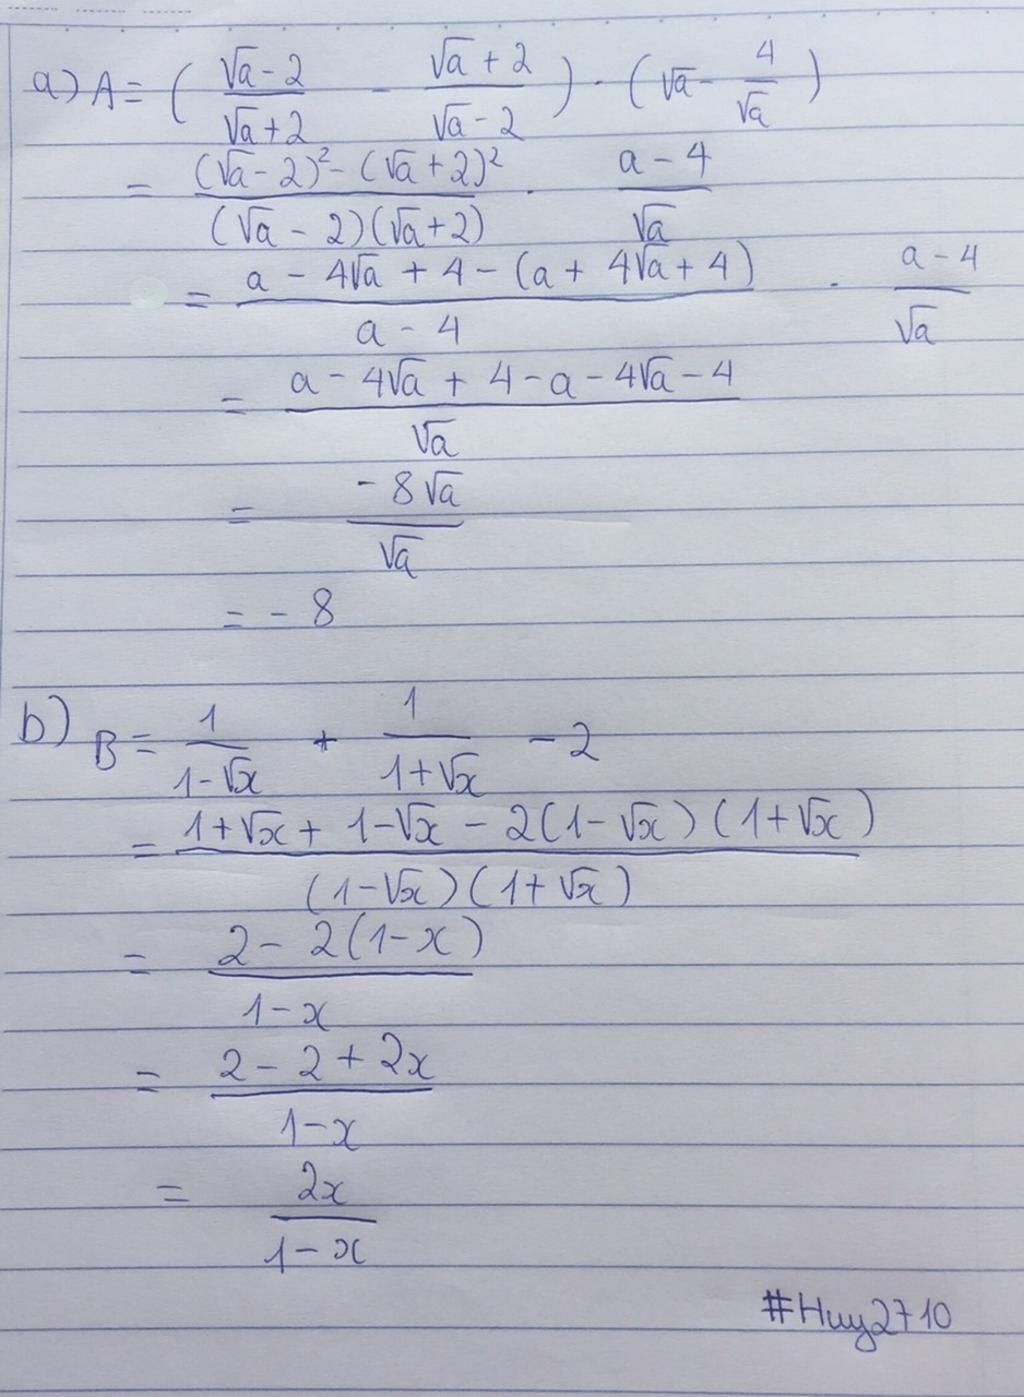 a) A = ( (√a - 2)/(√a + 2) - (√a + 2)/(√a - 2) ) · ( √a - 4/√a )
= ((√a - 2)² - (√a + 2)²)/((√a - 2)(√a + 2)) · (a - 4)/√a
= (a - 4√a + 4 - (a + 4√a + 4))/(a - 4) · (a - 4)/√a
= (a - 4√a + 4 - a - 4√a - 4)/√a
= (-8√a)/√a
= - 8
b) B = 1/(1 - √x) + 1/(1 + √x) - 2
= (1 + √x + 1 - √x - 2(1 - √x)(1 + √x))/((1 - √x)(1 + √x))
= (2 - 2(1 - x))/(1 - x)
= (2 - 2 + 2x)/(1 - x)
= 2x/(1 - x)
#Huy2710